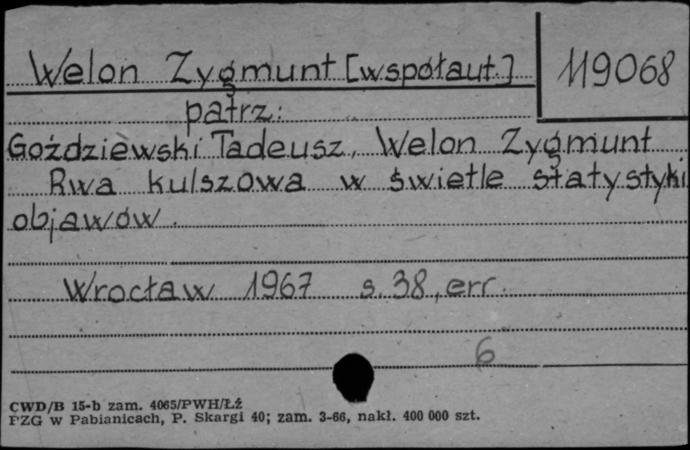 Welon Zygmunt [współaut.] 119068
patrz:
Goździewski Tadeusz, Welon Zygmunt
Rwa kulszowa w świetle statystyki
objawów.
Wrocław 1967 s. 38, err.
6
CWD/B 15-b zam. 4065/PWH/Łź
PZG w Pabianicach, P. Skargi 40; zam. 3-66, nakł. 400 000 szt.